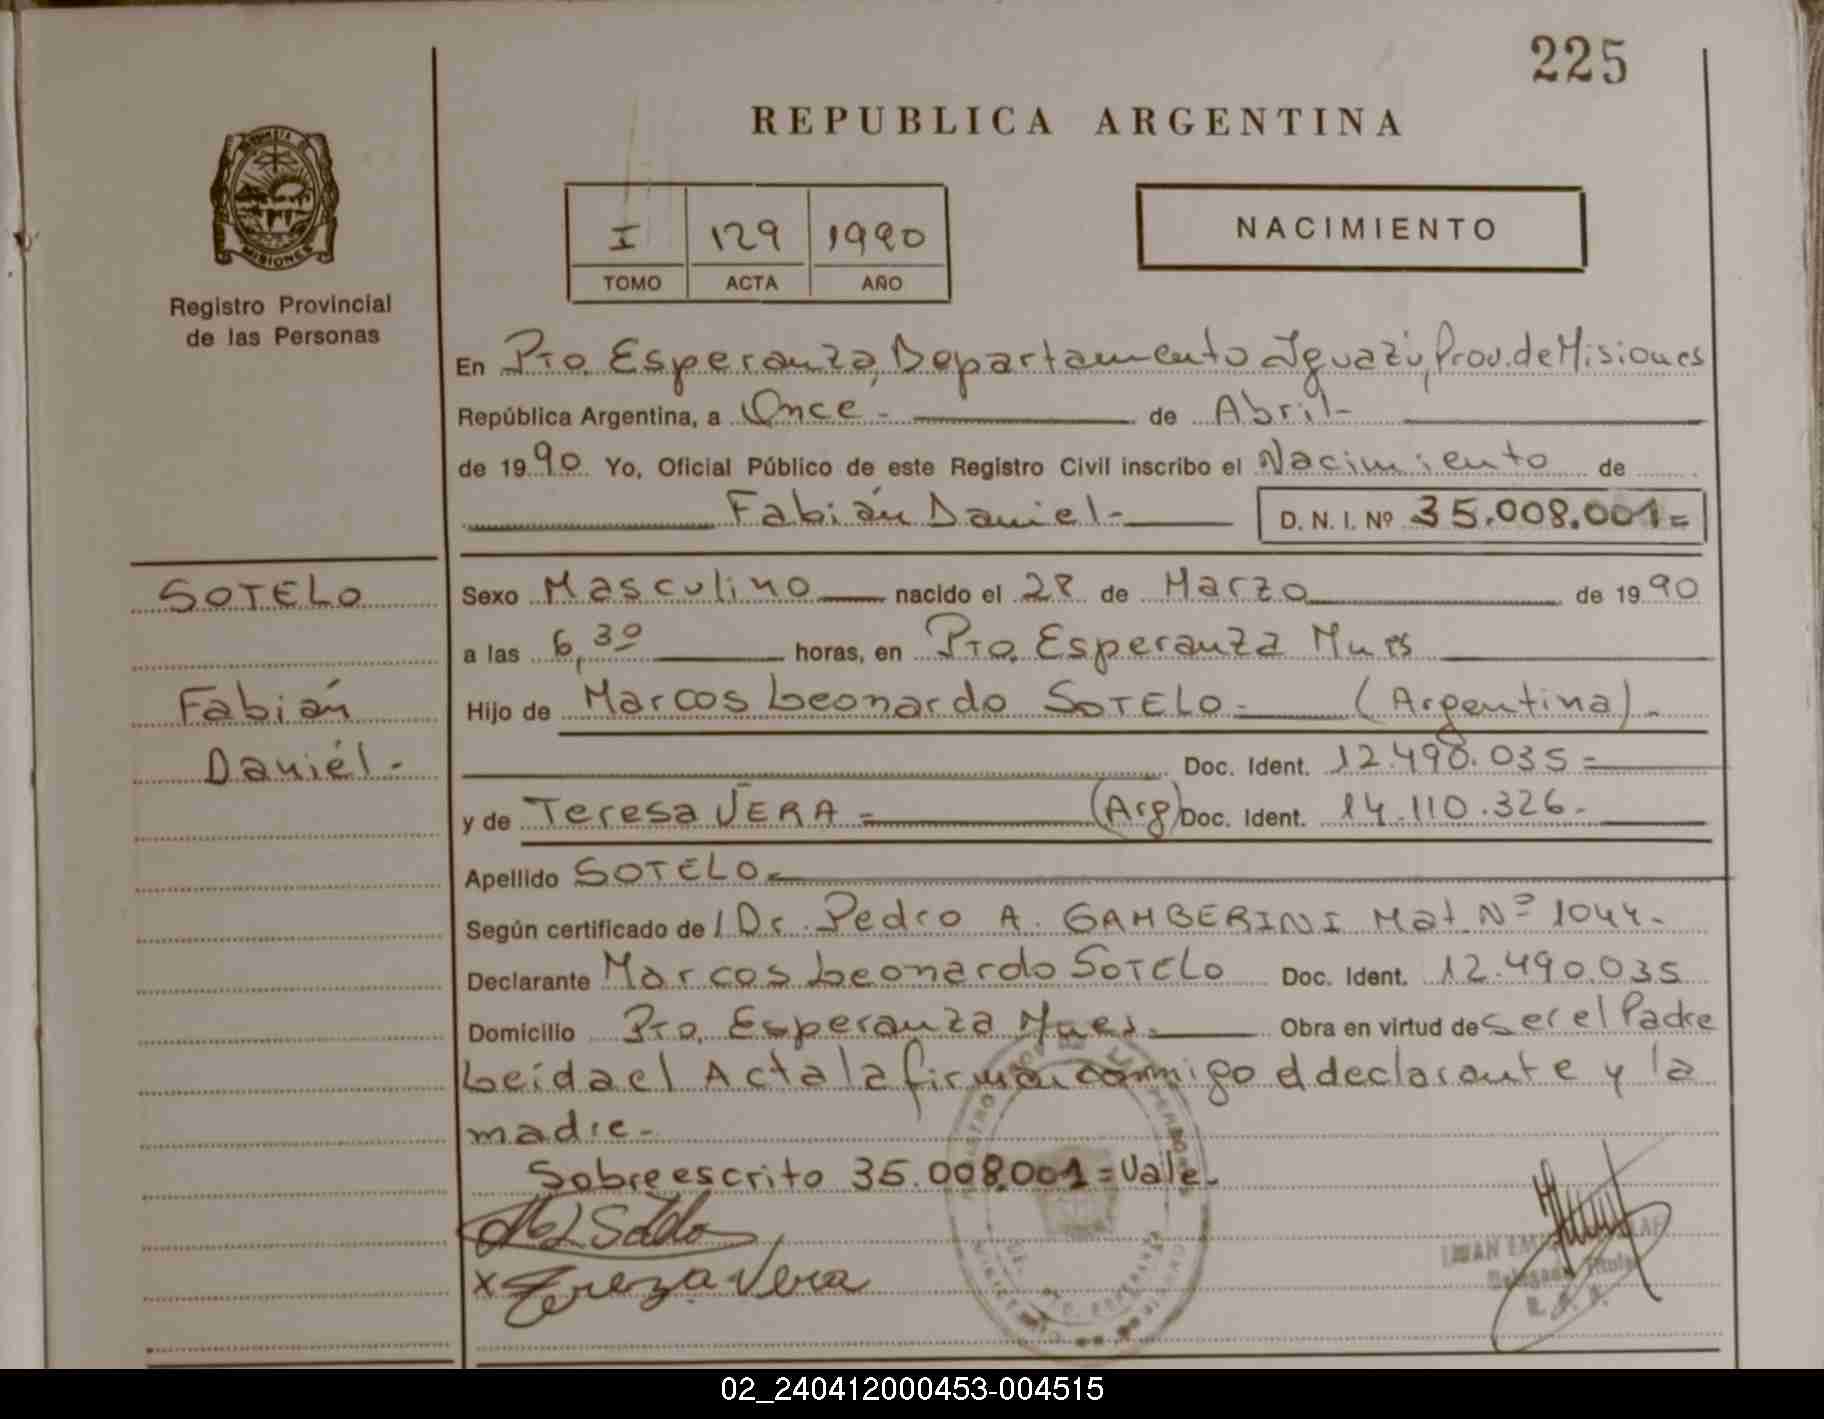 225
REPUBLICA ARGENTINA
MISIONES
Registro Provincial
de las Personas
I 129 1990
TOMO ACTA AÑO
NACIMIENTO
En Pto. Esperanza, Departamento Iguazú, Prov. de Misiones
República Argentina, a Once - de Abril-
de 1990 Yo, Oficial Público de este Registro Civil inscribo el Nacimiento de
Fabián Daniel- D. N. I. Nº 35.008.001=
SOTELO
Fabián
Daniél-
Sexo Masculino nacido el 28 de Marzo de 1990
a las 6,30 horas, en Pto. Esperanza Mnes
Hijo de Marcos Leonardo SOTELO- (Argentina)-
Doc. Ident. 12.490.035=
y de Teresa VERA = (Arg) Doc. Ident. 14.110.326-
Apellido SOTELO-
Según certificado de Dr. Pedro A. GAMBERINI Mat. Nº 1044-
Declarante Marcos Leonardo SOTELO Doc. Ident. 12.490.035
Domicilio Pto. Esperanza Mnes- Obra en virtud de ser el Padre
Leída el Acta la firman conmigo el declarante y la
madre-
Sobreescrito 35.008.001=Vale-
x Tereza Vera
Delegado Titular
02_240412000453-004515